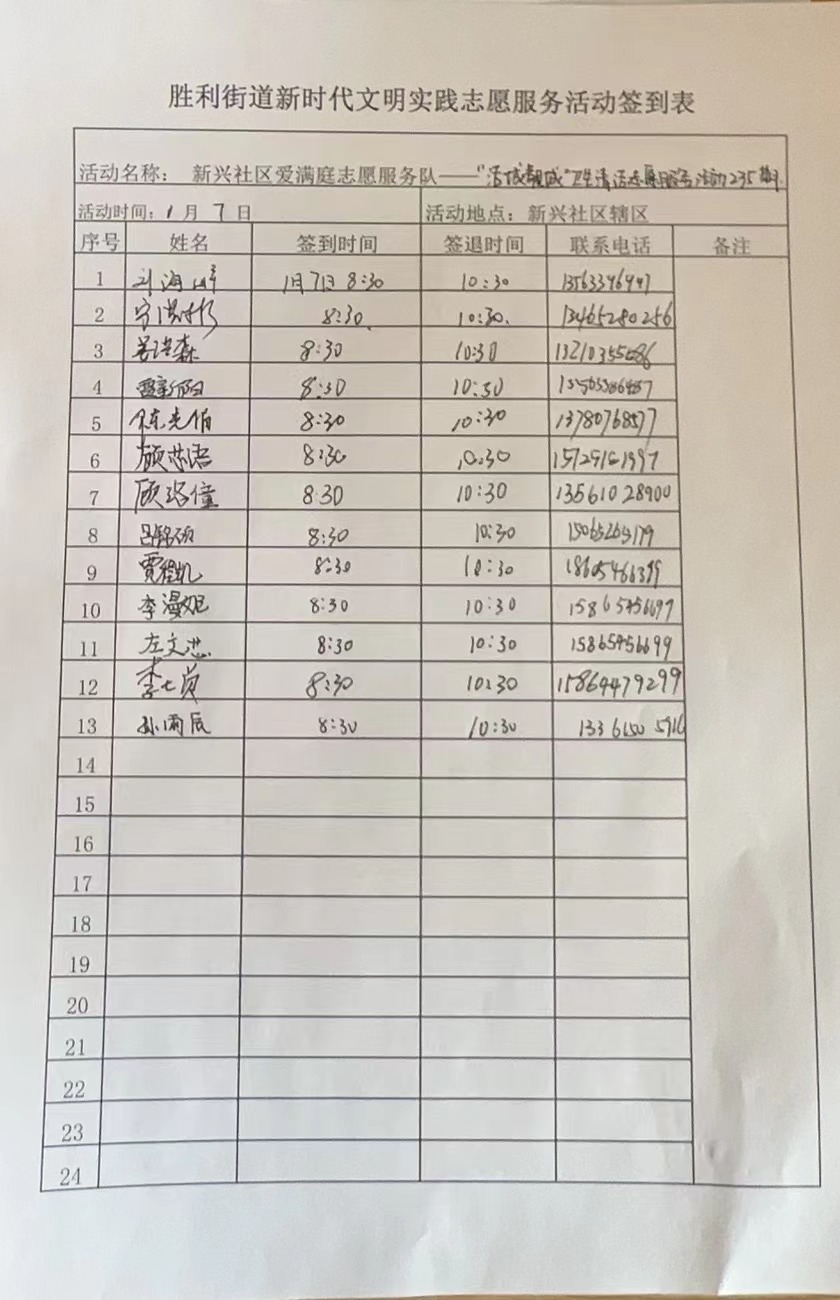 胜利街道新时代文明实践志愿服务活动签到表
活动名称： 新兴社区爱满庭志愿服务队——“ 卫生清洁志愿服务活动235期
活动时间：1月7日 活动地点：新兴社区辖区
序号 姓名 签到时间 签退时间 联系电话 备注
1 刘海峰 1月7日 8:30 10:30 13563396947
2 8:30 10:30 13465280256
3 8:30 10:30
4 8:30 10:30
5 陈光伯 8:30 10:30 13780768577
6 8:30 10:30
7 8:30 10:30 13561028900
8 8:30 10:30
9 贾程凯 8:30 10:30 18605466399
10 李漫妮 8:30 10:30
11 左文忠 8:30 10:30 15865956699
12 8:30 10:30 15864479299
13 孙雨辰 8:30 10:30
14
15
16
17
18
19
20
21
22
23
24